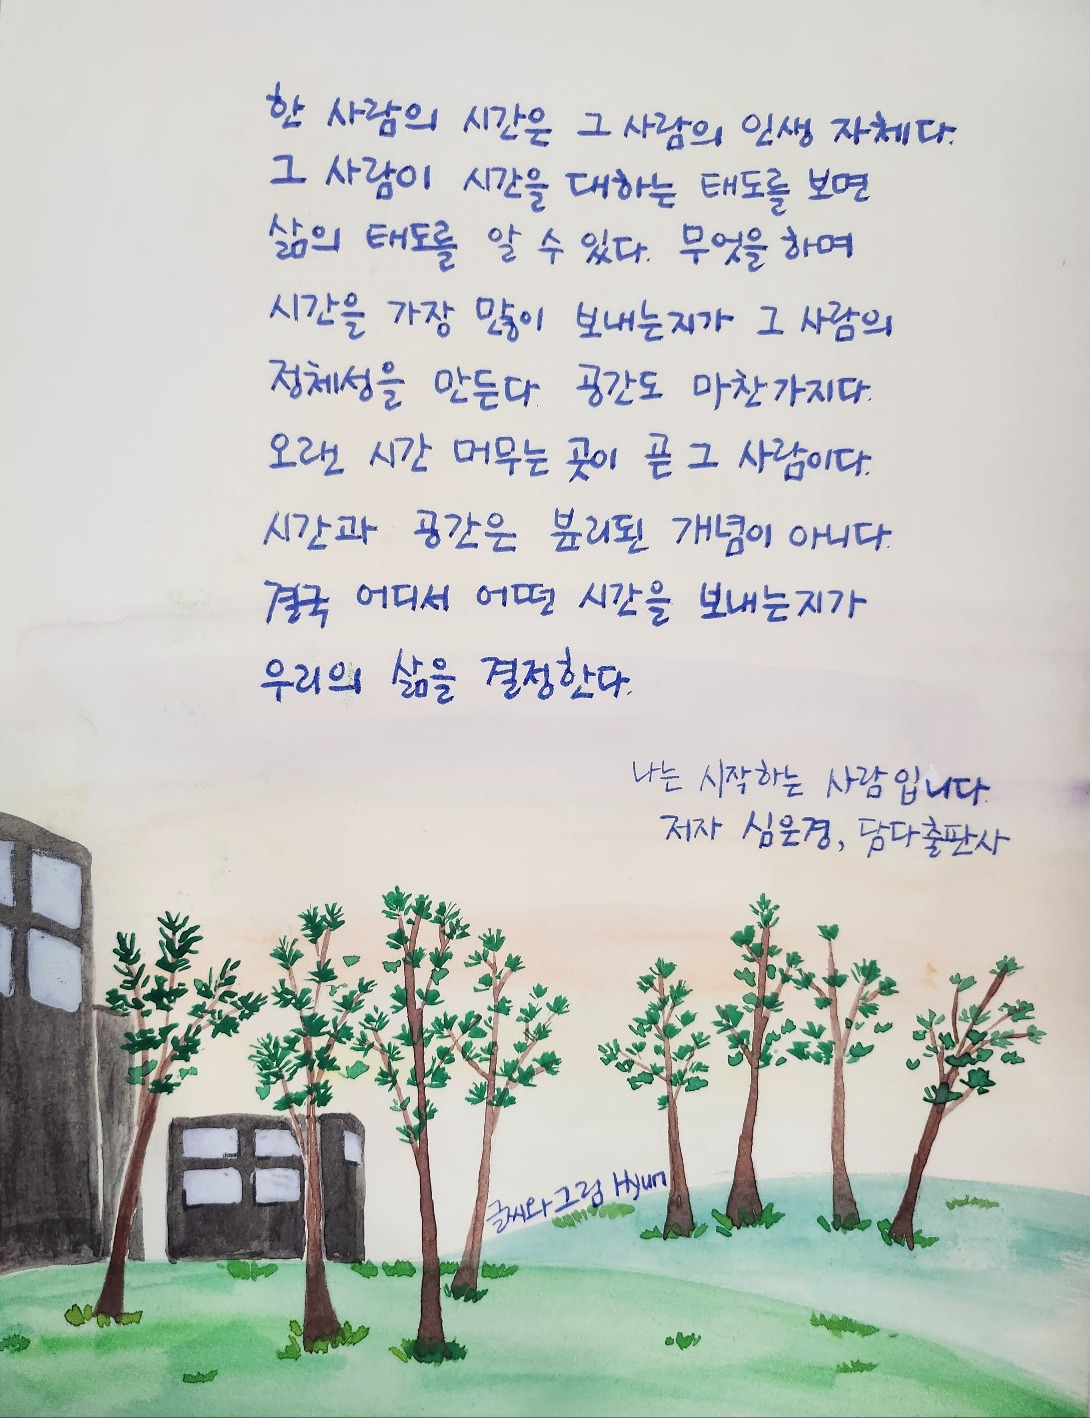 한 사람의 시간은 그 사람의 인생 자체다.
그 사람이 시간을 대하는 태도를 보면
삶의 태도를 알 수 있다. 무엇을 하며
시간을 가장 많이 보내는지가 그 사람의
정체성을 만든다. 공간도 마찬가지다.
오랜 시간 머무는 곳이 곧 그 사람이다.
시간과 공간은 분리된 개념이 아니다.
결국 어디서 어떤 시간을 보내는지가
우리의 삶을 결정한다.
나는 시작하는 사람입니다.
저자 심은경, 담다출판사
글씨와 그림 Hyun